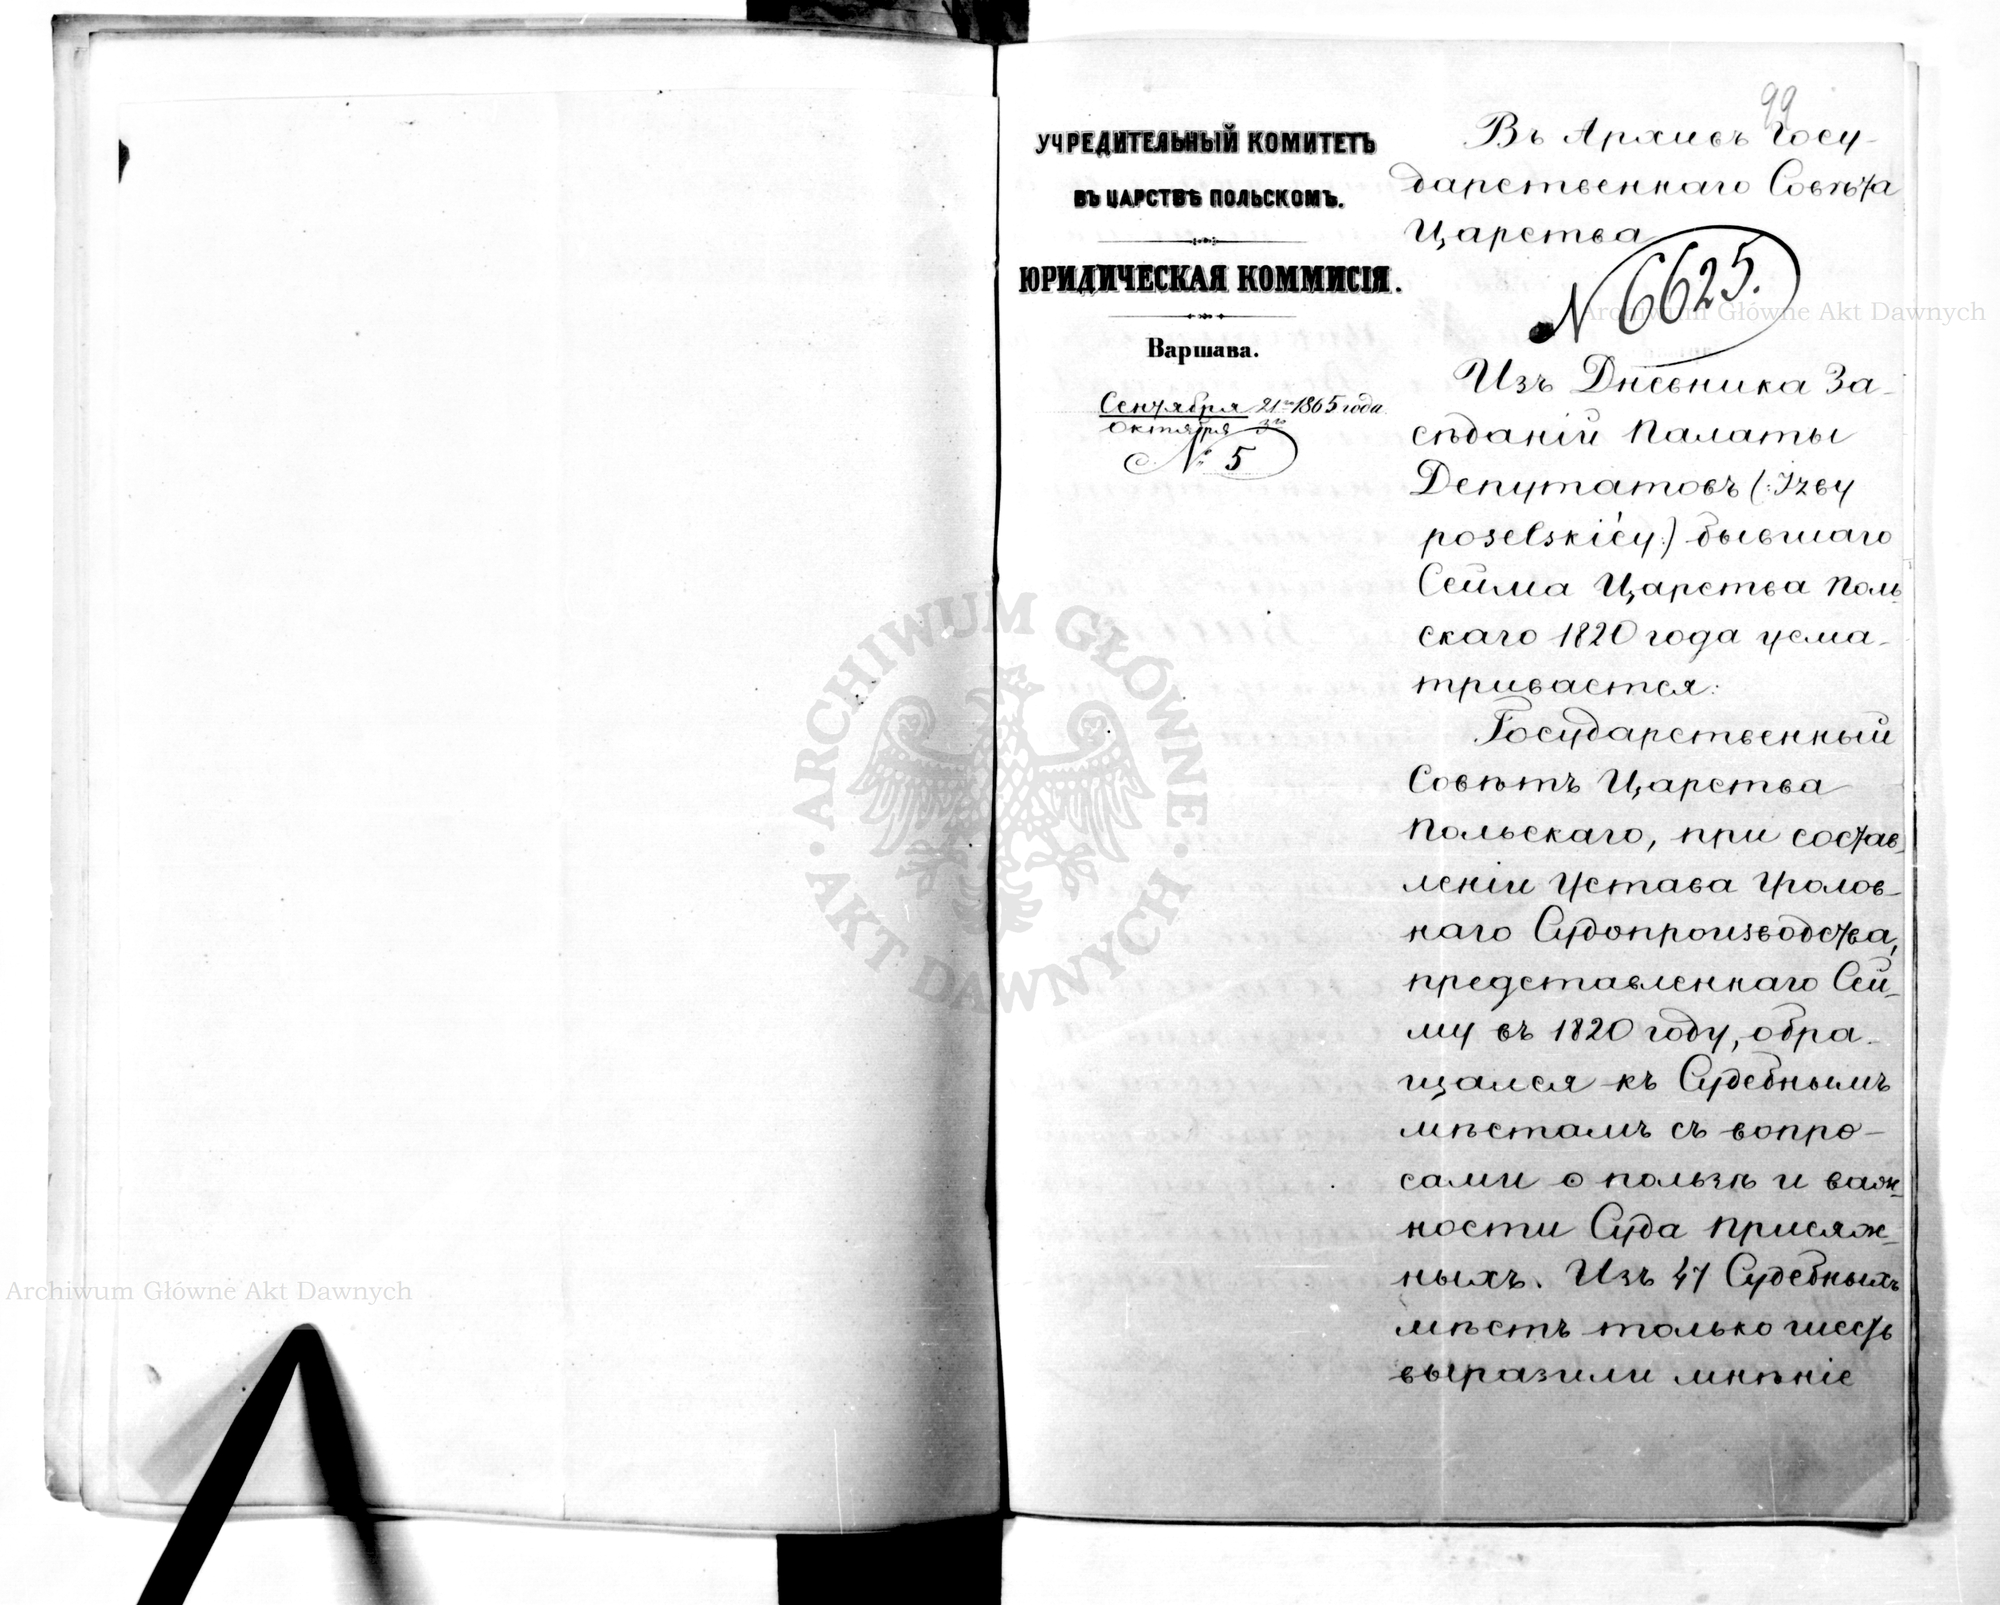 99
УЧРЕДИТЕЛЬНЫЙ КОМИТЕТЪ
ВЪ ЦАРСТВѢ ПОЛЬСКОМЪ.
ЮРИДИЧЕСКАЯ КОММИСІЯ.
Варшава.
Сентября 21го 1865 года
Октября 3го
№ 5
Въ Архивъ Госу-
дарственнаго Совѣта
Царства
N 6625.
Изъ Дневника За-
сѣданій Палаты
Депутатовъ (:Izby
poselskiéy:) бывшаго
Сейма Царства Поль-
скаго 1820 года усма-
тривается:
Государственный
Совѣтъ Царства
Польскаго, при состав-
леніи Устава Уголов-
наго Судопроизводства,
представленнаго Сей-
му въ 1820 году, обра-
щался къ Судебнымъ
мѣстамъ съ вопро-
сами о пользѣ и важ-
ности Суда Присяж-
ныхъ. Изъ 47 Судебныхъ
мѣстъ только шесть
выразили мнѣніе
Archiwum Główne Akt Dawnych
Archiwum Główne Akt Dawnych
ARCHIWUM GŁÓWNE
AKT DAWNYCH